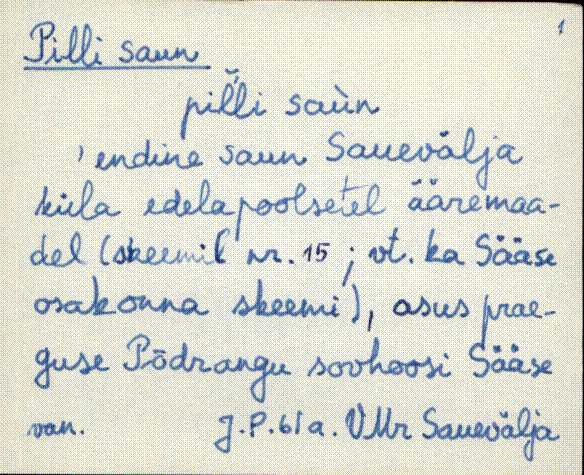 1
Pilli saun
pil̆̀li saùn
’endine saun Sauevälja
küla edelapoolsetel ääremaa-
del (skeemil nr. 15; vt. ka Sääse
osakonna skeemi), asus prae-
guse Põdrangu sovhoosi Sääse
van. J.P. 61 a. VMr Sauevälja